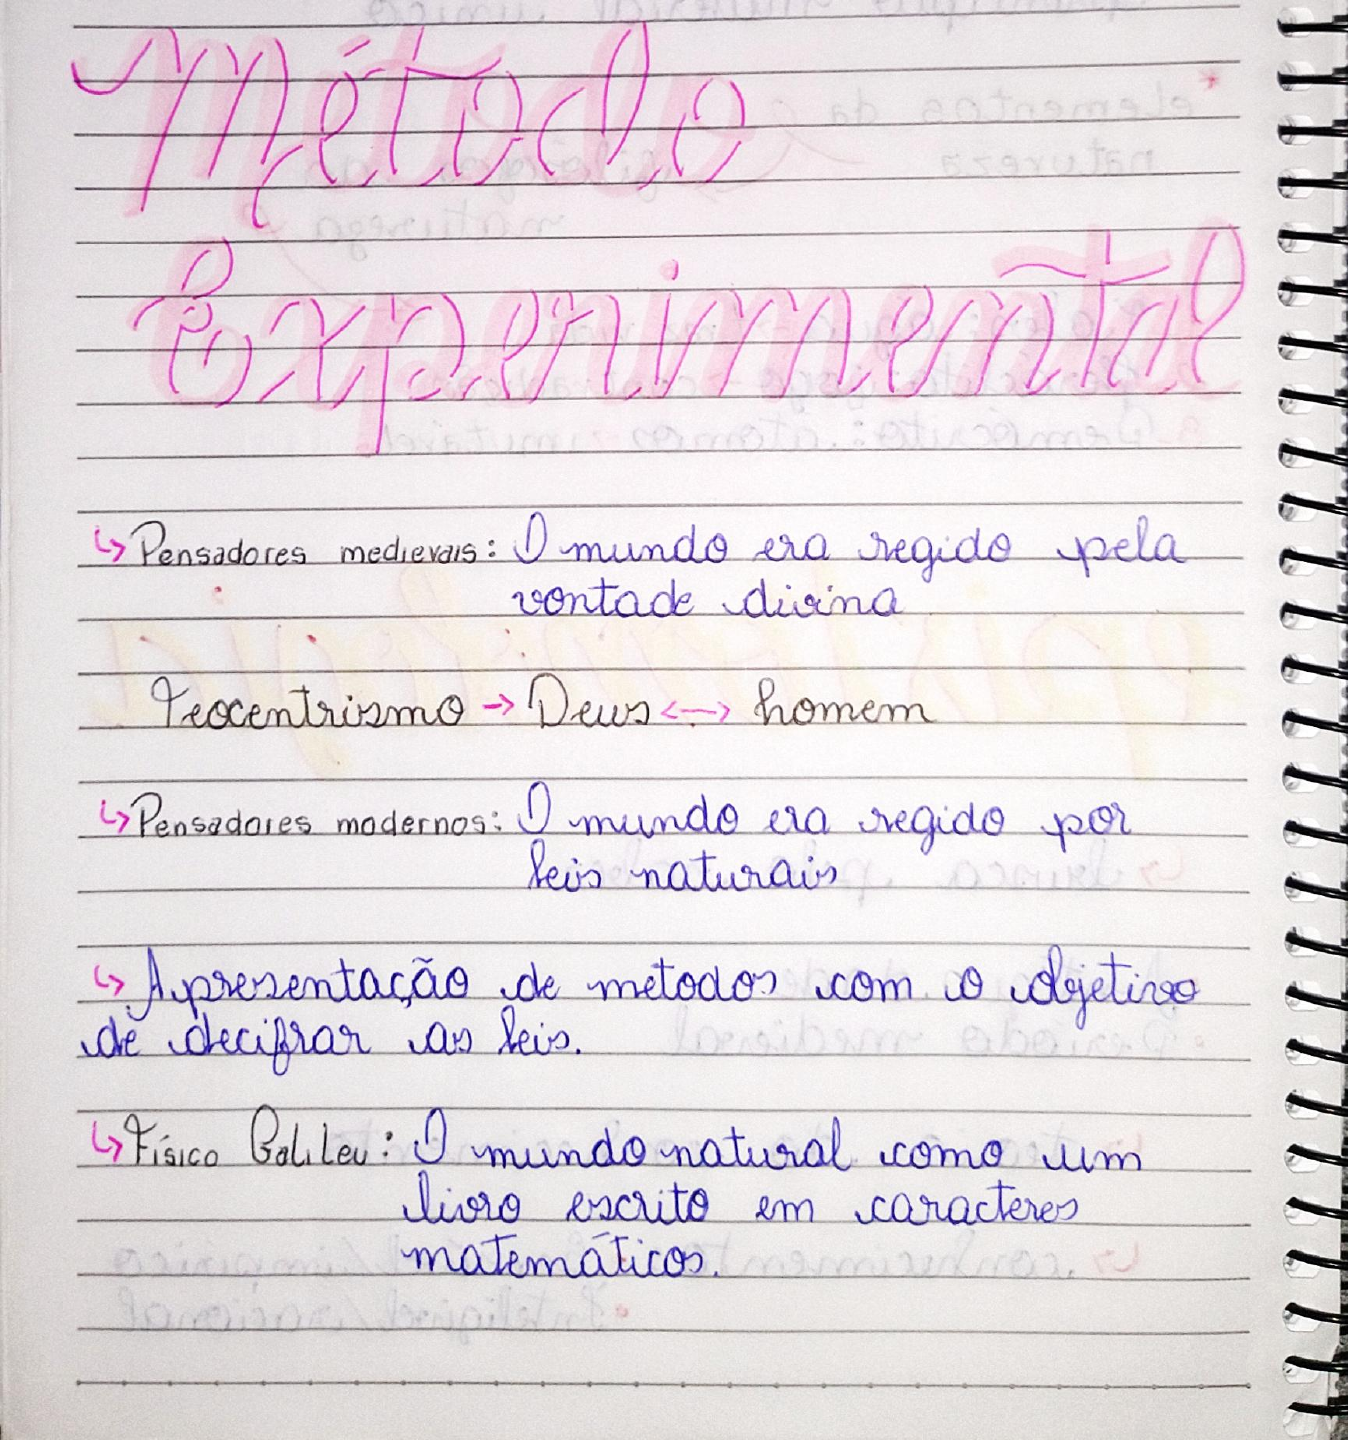 Método
Experimental
↳ Pensadores medievais: O mundo era regido pela
vontade divina
Teocentrismo → Deus <--> homem
↳ Pensadores modernos: O mundo era regido por
leis naturais
↳ Apresentação de métodos com o objetivo
de decifrar as leis.
↳ Físico Galileu: O mundo natural como um
livro escrito em caracteres
matemáticos.